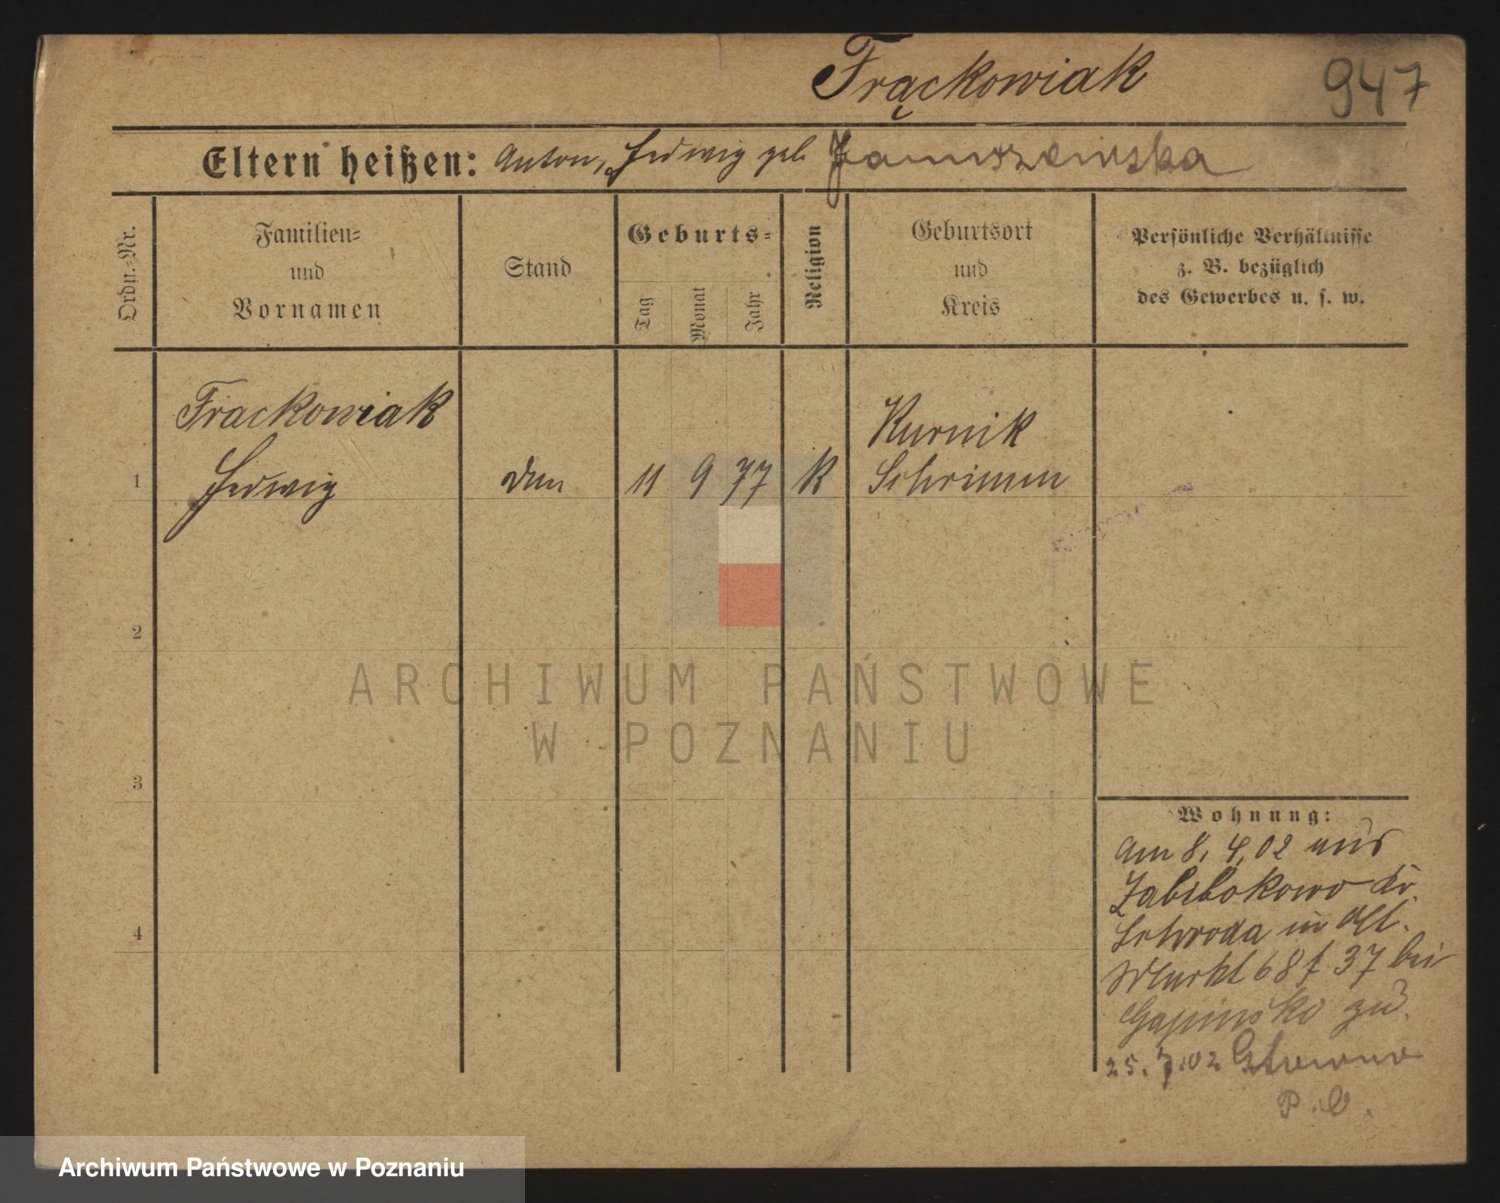 Frąckowiak 947
Eltern heißen: Anton, Hedwig geb. Januszewska
Ordn.-Nr.
Familien-
und
Vornamen
Stand
Geburts-
Tag
Monat
Jahr
Religion
Geburtsort
und
Kreis
Persönliche Verhältnisse
z. B. bezüglich
des Gewerbes u. s. w.
Frackowiak
Kurnik
1 Hedwig 11 9 77 K Schrimm
2
ARCHIWUM PAŃSTWOWE
W POZNANIU
3
Wohnung:
am 8. 4. 02 aus
Zabikowo Kr.
Schroda in Alt.
Markt 68 / 37 bei
zu.
25. 7. 02 Glowno
P. O.
4
Archiwum Państwowe w Poznaniu